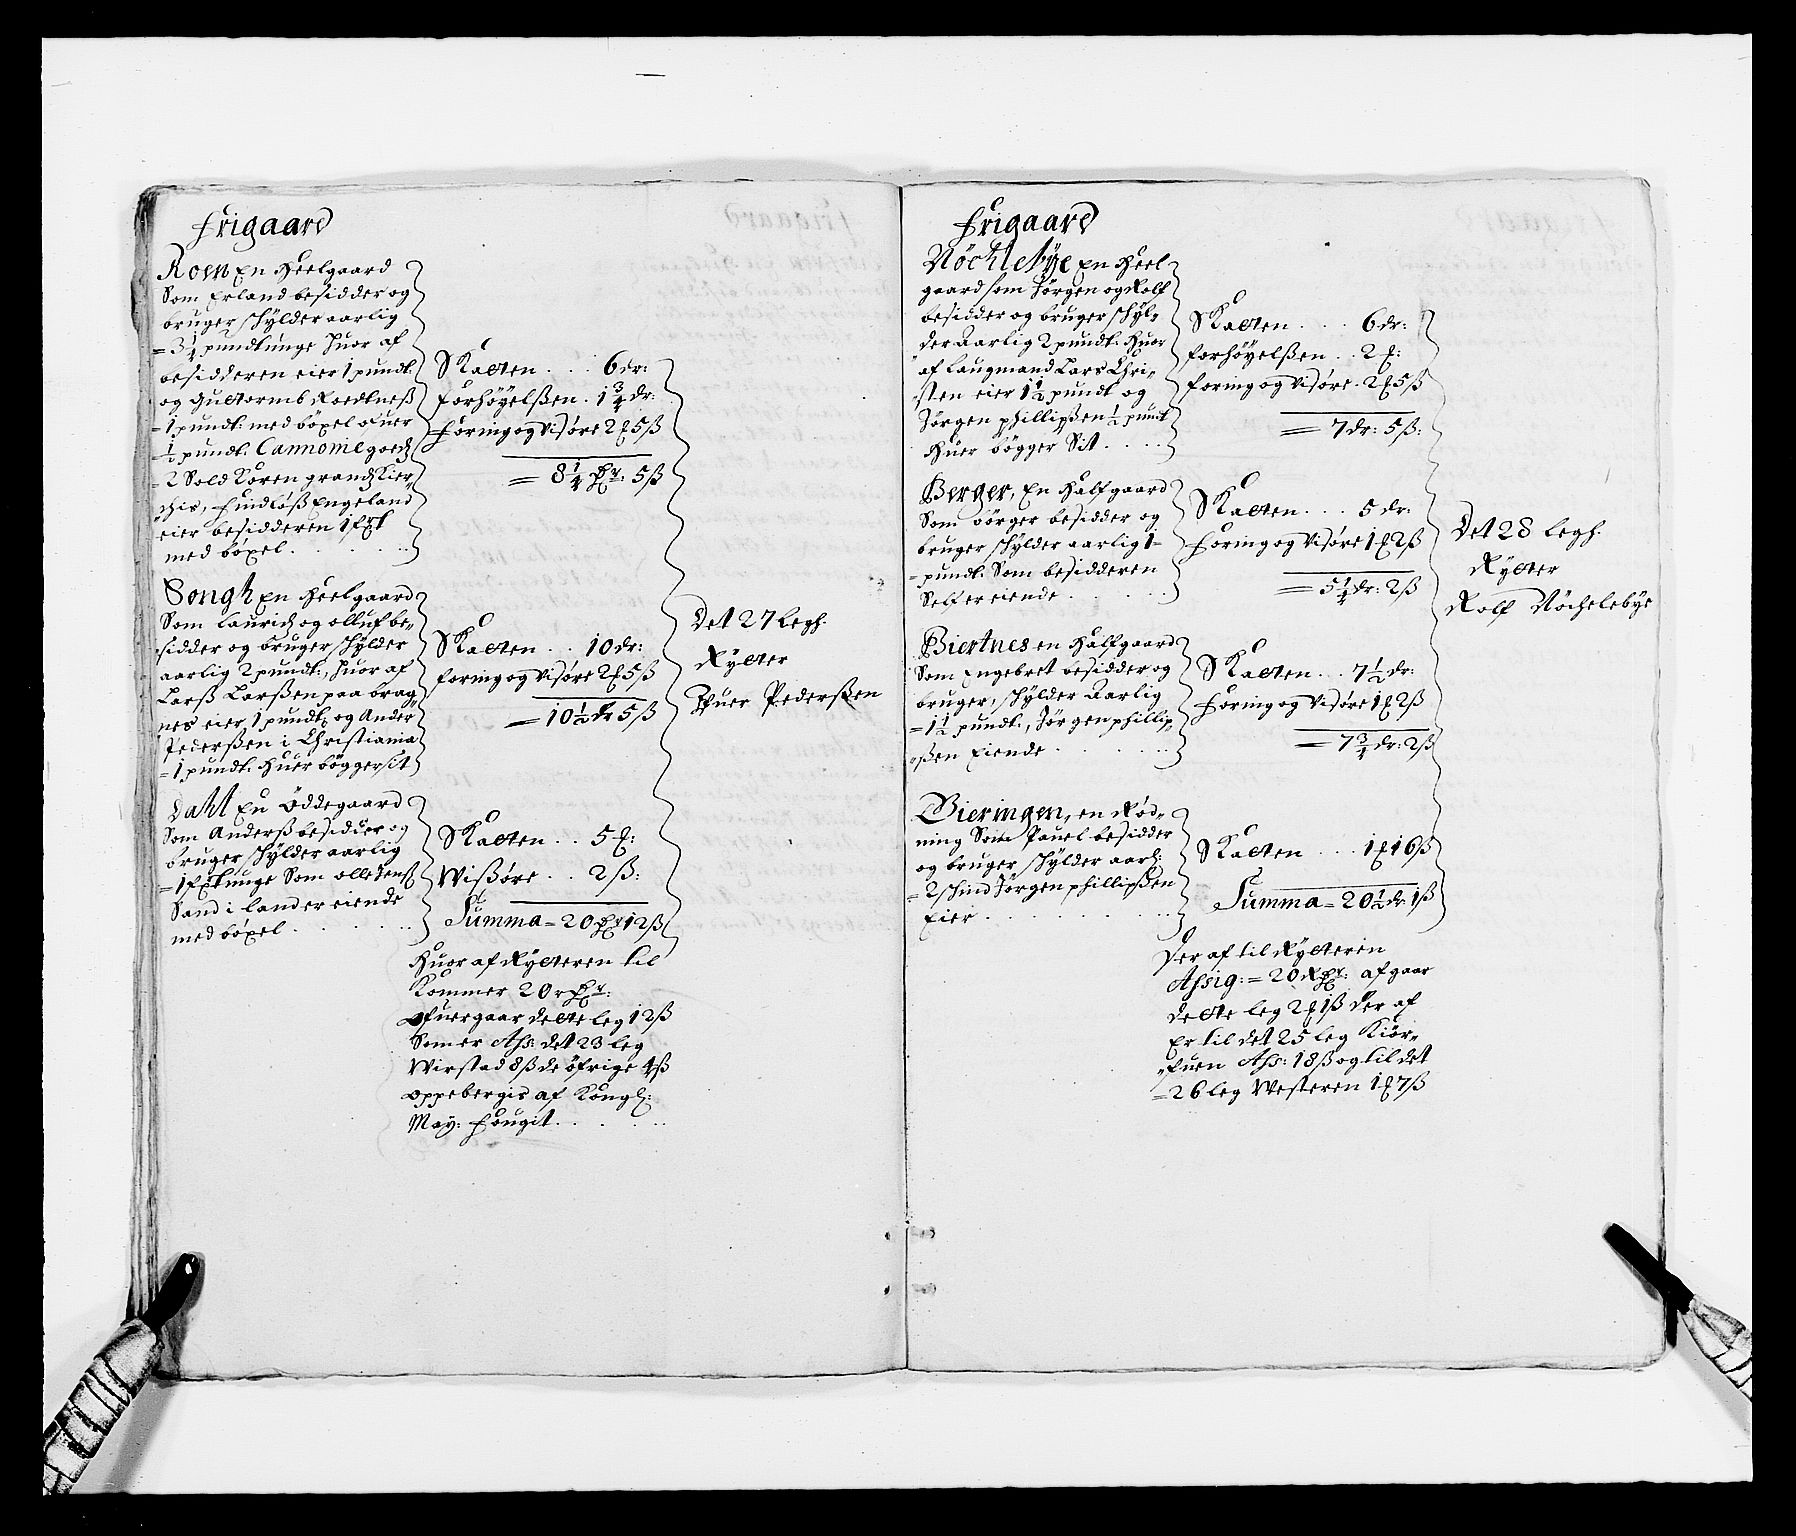 Frigaard
Roen En Heelgaard
Som Erland besidder og
bruger schylder aarlig
=3¼ pundtunge huor af
besidderen eier 1 pundt:
og Guttormb Roedtneß
=1 pundt: med böxel ofuer
½ pundt: Cannonie goedz
=2 Sold Koren grandz Kier=
chis, Engeland
eier besidderen 1 f
med böxel . . .
Skatten . . . 6 dr:
Forhöyelßen . 1¾ dr:
Foring og Visöre 2 f 5 ß
= 8¼ Rdr: 5 ß
Songh En Heelgaard
Som Lauridz og Olluf be=
sidder og bruger schylder
aarlig 2 pundt:, huor af
Larß Larßen paa Brag
nes eier 1 pundt: og Ander
Pederßen i Christiania
=1 pundt: Huer böggersit
Skatten . . . 10 dr:
Foring og Visöre 2 f 5 ß
= 10½ dr 5 ß
Det 27 Legh:
Rytter
Ifuer Pederßen
Dahl En Öddegaard
Som Anderß besidder og
bruger schylder aarlig
=1 f tunge Som olle Jenß
Sand i land er eiende
med böxel . . .
Skatten . . 5 f:
Wißöre . . 2 ß:
Summa = 20 Rdr 12 ß
Huor af Rytteren til
Kommer 20 rdr:
Ofuergaar dette leg 12 ß
Som er Ass: det 23 leg
Wirstad 8 ß de öfrige 4 ß
oppebergis af Kongl:
May: Fougit . . . .
Frigaard
Nöchlebye En Heel
gaard som Jörgen og Rolf
besidder og bruger schyl=
der Aarlig 2 pundt: Huor
af Laugmand Lars Chri=
sten eier 1½ pundt og
Jörgen phillipßen ½ pundt
Huer bögger Sit . . . .
Skatten . . . 6 dr:
forhöyelßen . . 2 f:
foring og Visöre . 2 f 5 ß
= 7 dr: 5 ß:
Berger, En Halfgaard
Som Börger besidder og
bruger schylder aarlig 1=
=pundt: Som besidderen
Self er eiende . . . .
Skatten . . . 5 dr:
Foring og Visöre 1 f 2 ß
= 5¼ dr: 2 ß
Det 28 Legh:
Rytter
Rolf Nöchelebye
Biertnes en Halfgaard
Som Engebret besidder og
bruger, schylder Aarlig
=1½ pundt:, Jörgen phillip=
=ßen Eiende . . . .
Skatten . . . 7½ dr:
Foring og Visöre 1 f 2 ß
= 7¾ dr: 2 ß
Bieringen, en Röd=
ning Som Pauel besidder
og bruger schylder aarl:
=2 schind Jörgen phillipßen
Eier . . . .
Skatten . . . 1 f 16 ß
Summa = 20½ dr 1 ß
Der af til Rytteren
Assig: = 20 Rdr: afgaar
dette leg 2 f 1 ß der af
Er til det 25 leg Kiör=
=fuen Ass: 18 ß og til det
=26 leg Westeren 1 f 7 ß